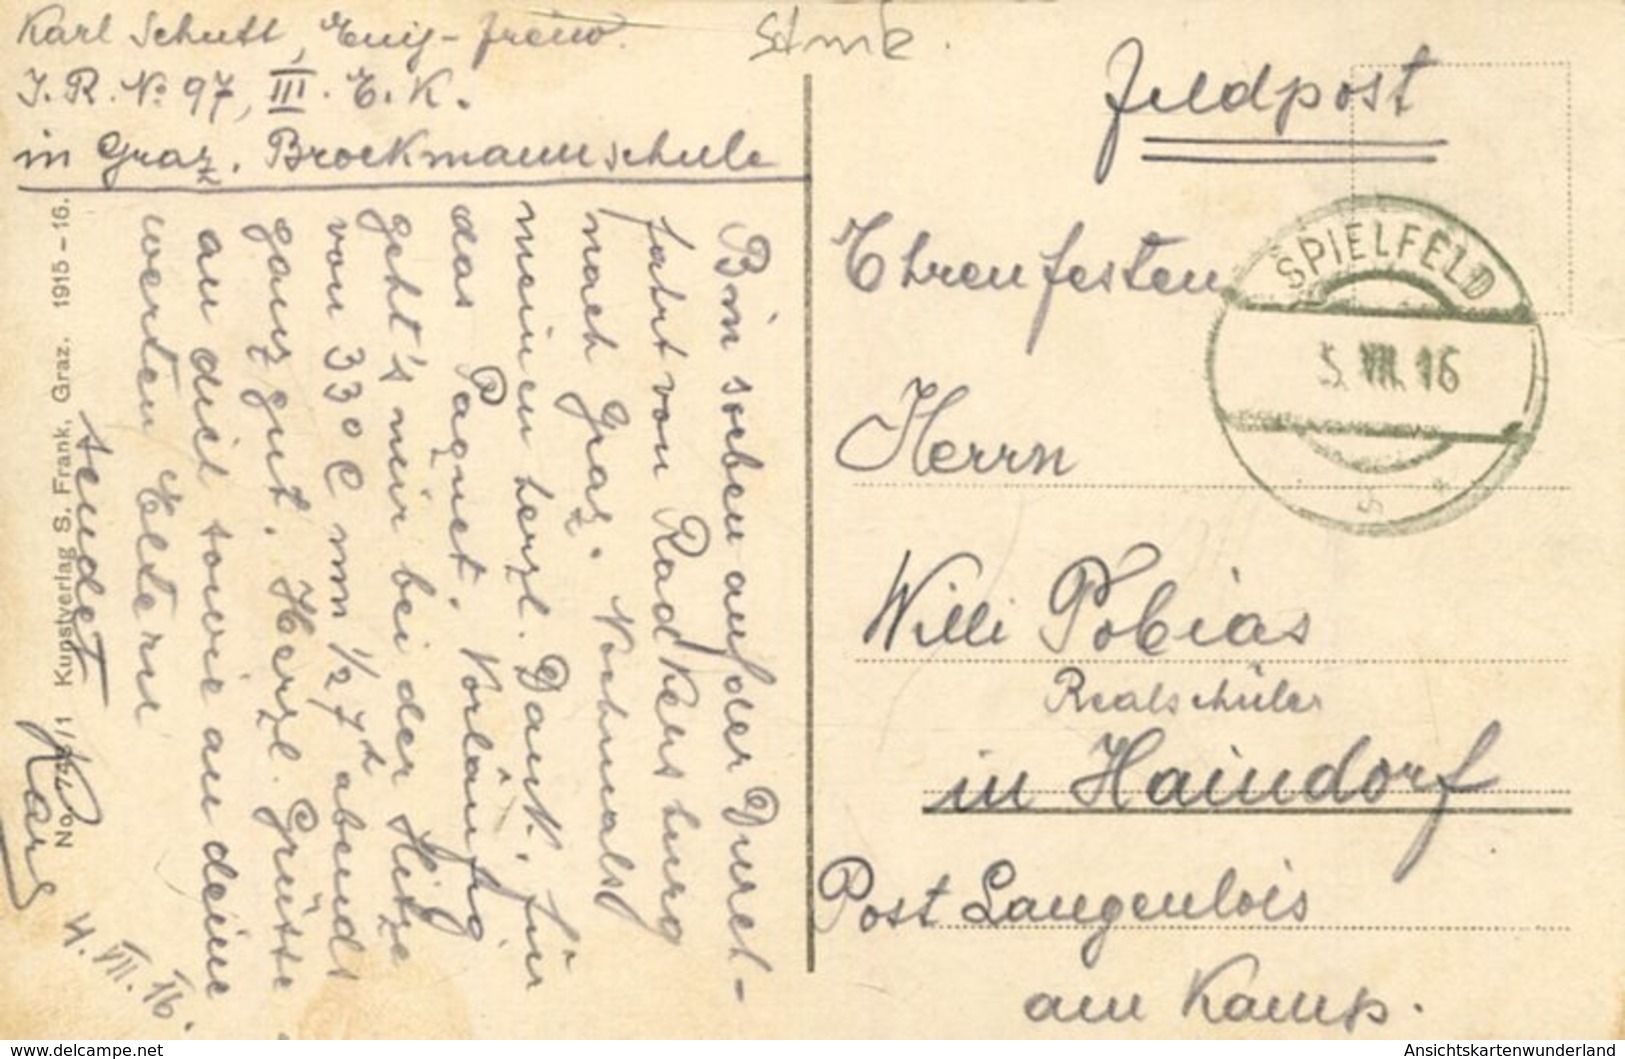 Karl Schutt, Einj-freiw.
I. R. No 97, III. E. K.
in Graz. Brockmannschule
Bin soeben auf der Durch-
fahrt von Radkersburg
nach Graz. Nochmals
meinen herzl. Dank. für
das Paquet. Vorläufig
geht's mir bei der Hitze
von 33° C um 1/2 7h abends
ganz gut. Herzl. Grüsse
an dich sowie an deine
werten Eltern
sendet
Karl
4. VII. 16.
No. 1 Kunstverlag S. Frank, Graz. 1915-16.
Stmk.
Feldpost
SPIELFELD
5. VII. 16
Ehrenfesten
Herrn
Willi Pobias
Realschüler
in Haindorf
Post Langenlois
am Kamp.
www.delcampe.net
Ansichtskartenwunderland